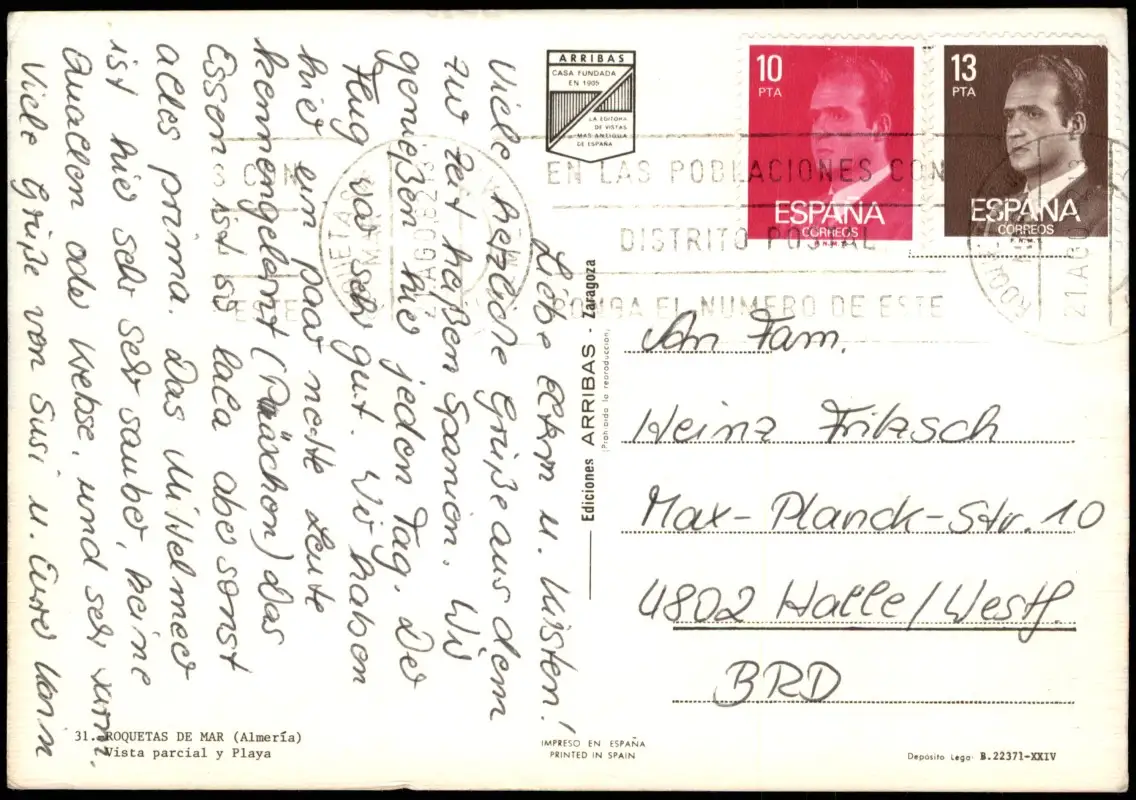 Liebe Eltern u. Kirsten!
Viele herzliche Grüße aus dem
zur Zeit heißen Spanien. Wir
genießen hier jeden Tag. Der
Flug war sehr gut. Wir haben
hier ein paar nette Leute
kennengelernt (Pärchen) das
Essen ist so lala aber sonst
alles prima. Das Mittelmeer
ist hier sehr sehr sauber, keine
Quallen oder Krebse, und sehr warm.
Viele Grüße von Susi u. Eure
31. ROQUETAS DE MAR (Almería)
Vista parcial y Playa
ARRIBAS
CASA FUNDADA
EN 1905
LA EDITORA
DE VISTAS
MAS ANTIGUA
DE ESPAÑA
Ediciones ARRIBAS - Zaragoza
(Prohibida la reproducción)
IMPRESO EN ESPAÑA
PRINTED IN SPAIN
10
PTA
ESPAÑA
CORREOS
F.N.M.T.
13
PTA
ESPAÑA
CORREOS
F.N.M.T.
EN LAS POBLACIONES CON
DISTRITO POSTAL
PONGA EL NUMERO DE ESTE
21 AGO 82
21.AGO
An Fam.
Heinz Fritzsch
Max-Planck-Str. 10
4802 Halle/Westf.
BRD
Depósito Legal B.22371-XXIV